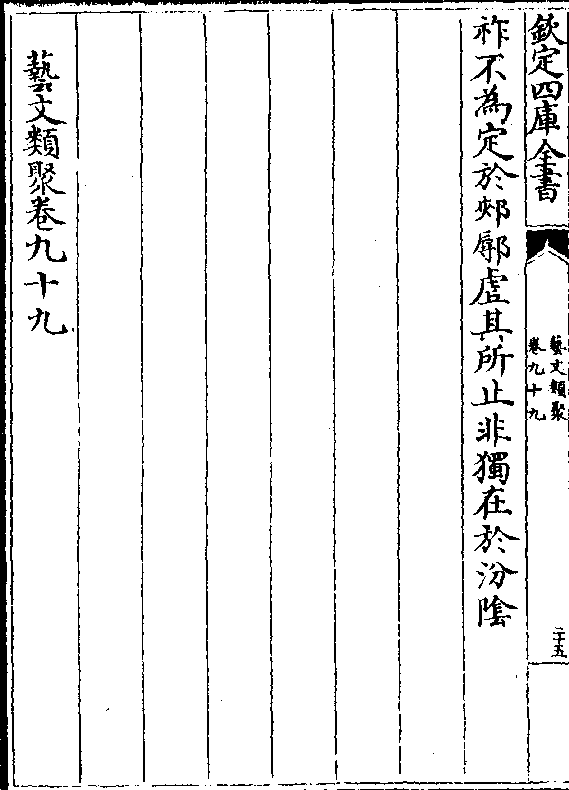 欽定四庫全書
藝文類聚
卷九十九
二十五
祚不為定於郟鄏虛其所止非獨在於汾陰
藝文類聚卷九十九